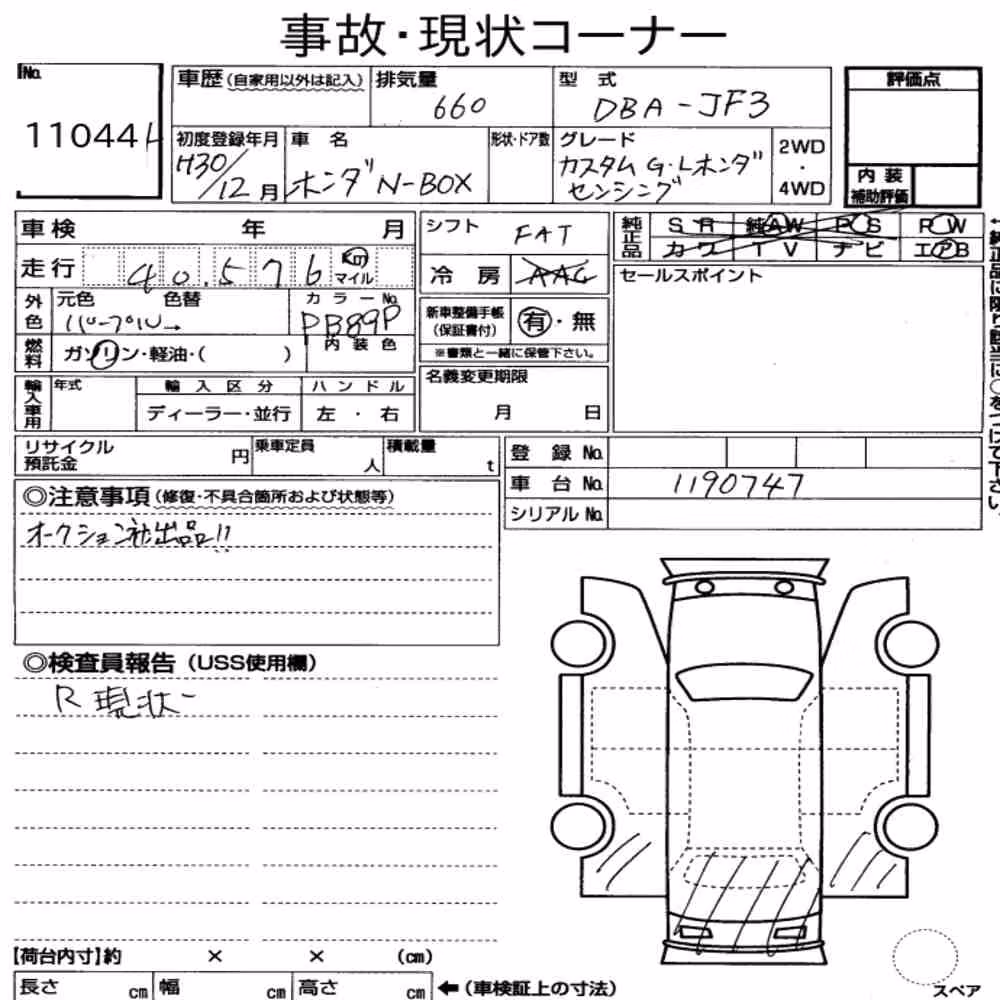 事故・現状コーナー
No.
11044
車歴(自家用以外は記入)
排気量
660
型式
DBA-JF3
評価点
初度登録年月
H30/12月
車名
ホンダ N-BOX
形状・ドア数
グレード
カスタム G・Lホンダ
センシング
2WD
・
4WD
内装
補助評価
車検 年 月
走行 40,576 km
マイル
シフト
FAT
冷房 AAC
純正品
SR 純AW PS PW
カワ TV ナビ エアB
セールスポイント
外色
元色 色替
パープル→
カラーNo.
PB89P
内装色
燃料
ガソリン・軽油・( )
新車整備手帳
(保証書付)
有・無
※書類と一緒に保管下さい。
輸入車用
年式
輸入区分
ディーラー・並行
ハンドル
左・右
名義変更期限
月 日
リサイクル
預託金 円
乗車定員
人
積載量
t
登録No.
車台No. 1190747
シリアルNo.
◎注意事項(修復・不具合箇所および状態等)
オークション社出品!!
◎検査員報告(USS使用欄)
R 現状
【荷台内寸】約 × × (cm)
長さ cm 幅 cm 高さ cm ←(車検証上の寸法)
スペア
←純正品に限り該当に○をつけて下さい。